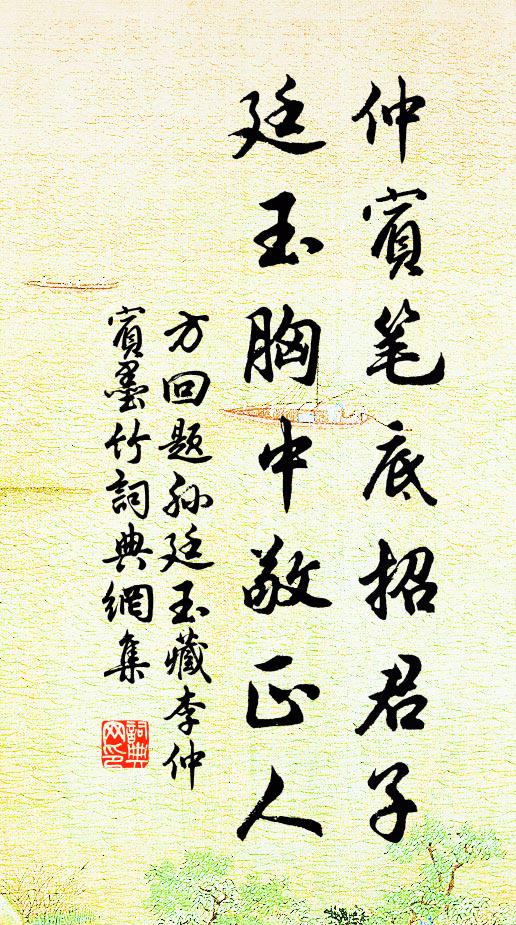 仲賓笔底招君子
廷玉胸中敬正人
方回题孙廷玉藏李仲
賓墨竹詞典網集
詞典
网印